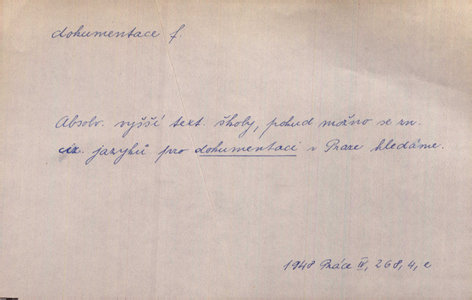 dokumentace f.
Absolv. vyšší text. školy, pokud možno se zn.
ciz. jazyků pro dokumentaci v Praze hledáme.
1948 Práce IV, 268, 4, c